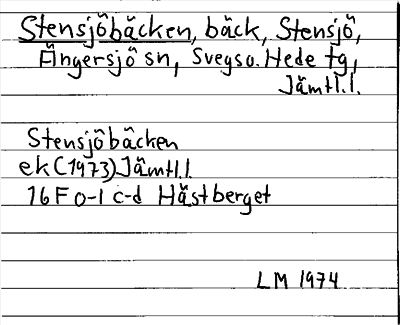 Stensjöbäcken, bäck, Stensjö,
Ängersjö sn, Svegs o. Hede tg,
Jämtl. l.
Stensjöbäcken
ek (1973) Jämtl. l
16 F 0-1 c-d Hästberget
LM 1974